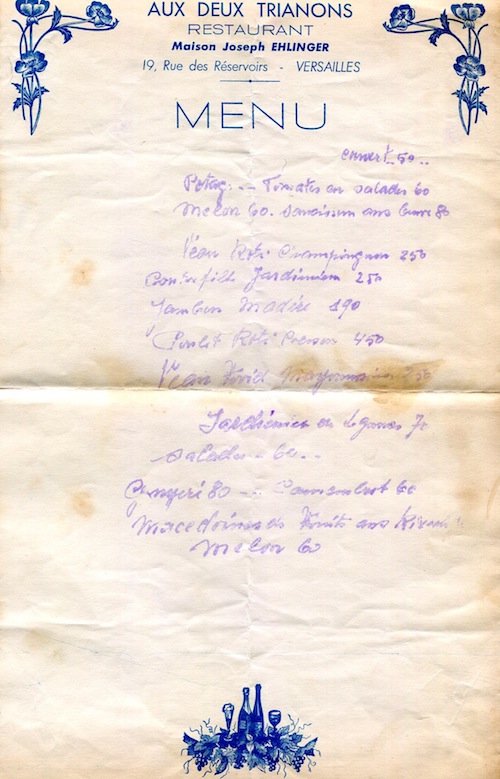 AUX DEUX TRIANONS
RESTAURANT
Maison Joseph EHLINGER
19, Rue des Réservoirs - VERSAILLES
MENU
couvert 50..
Potage -- Tomates en salades 60
Melon 60. Saucisson au beurre 80
Veau Roti Champignons 250
Contrefilet Jardiniere 250
Jambon Madère 190
Poulet Roti Cresson 450
Veau froid Mayonnaise 250
Jardiniere de legumes 70
Salades - 60..
Gruyeri 80 --- Camembert 60
Macedoine de fruits au
Melon 60